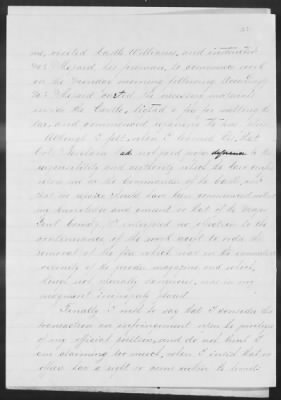 me, visited Castle Williams, and instructed
Mr. Sheard, his foreman, to commence work
on the Tuesday morning following. Accordingly
Mr. Sheard carted the necessary materials
inside the Castle, lighted a fire for melting the
tar, and commenced repairing the roof.
Although I felt, when I learned this, that
Col. had not paid more deference to the
responsibility and authority which the law
upon me as the Commander of the Castle, and
that no repairs should have been commenced without
my knowledge and consent or that of the Major
Genl Comdg, I interposed no objection to the
continuance of the work except to order the
removal of the fire which was in the immediate
vicinity of the powder magazine and which,
if not actually dangerous, was in my
judgment improperly placed.
Finally I wish to say that I consider the
transaction an infringement upon the privileges
of my official position, and do not think I
am claiming too much, when I insist that no
officer has a right to come within the limits